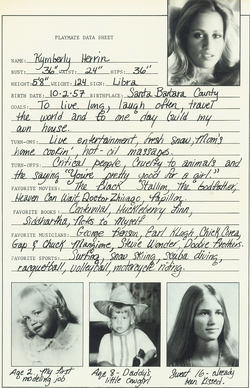 PLAYMATE DATA SHEET
NAME: Kymberly Herrin
BUST: 36" WAIST: 24" HIPS: 36"
HEIGHT: 5'8" WEIGHT: 124 SIGN: Libra
BIRTH DATE: 10-2-57 BIRTHPLACE: Santa Barbara County
GOALS: To live long, laugh often, travel
the world and to one day build my
own house.
TURN-ONS: Live entertainment, fresh snow, Mom's
home cookin', hot-oil massages.
TURN-OFFS: Critical people, Cruelty to animals and
the saying "You're pretty good for a girl."
FAVORITE MOVIES: The Black Stallion, The Godfather,
Heaven Can Wait, Doctor Zhivago, Papillon.
FAVORITE BOOKS: Huckleberry Finn,
Siddhartha, Notes to Myself
FAVORITE MUSICIANS: George Benson, Earl Klugh, Chick Corea,
Gap & Chuck Mangione, Stevie Wonder, Doobie Brothers.
FAVORITE SPORTS: Surfing, snow skiing, scuba diving,
racquetball, volleyball, motorcycle riding.
Age 2, My first
modeling job
Age 8 - Daddy's
little cowgirl
Sweet 16 - already
been kissed.